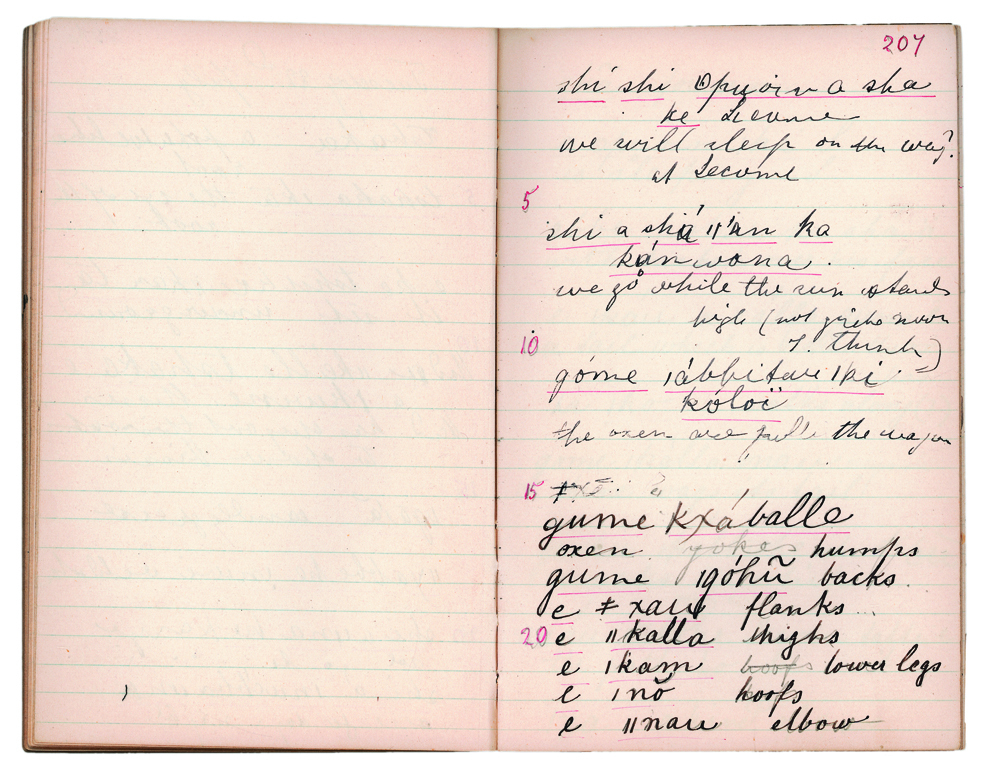 207
shí shi ʘpuoin a sha
ke Lecome
we will sleep on the way?
at Lecome
5
shi a shá ǁ'an ka
kán wona.
we go while the sun stands
high (not quite noon
10 I think)
góme ǀábbitwe ǀki
kóloï
the oxen are pull the wagon
15
gume kxáballe
oxen yokes humps
gume ǀgóhũ backs.
e ǂxau flanks
20 e ǁkalla thighs
e ǀkam hoofs lower legs
e ǀnŏ hoofs
e ǁnau elbow